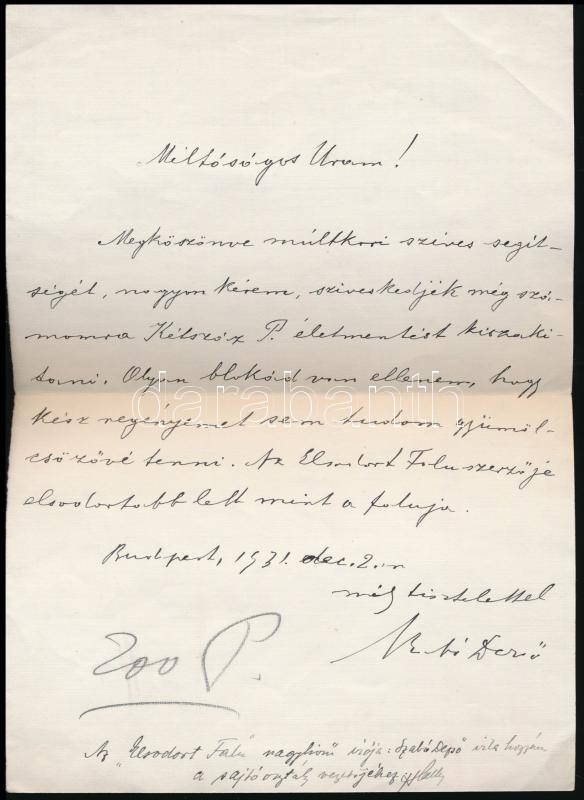 Méltóságos Uram!
Megköszönve múltkori szives segit-
ségét, nagyon kérem, sziveskedjék még szá-
momra Kétszáz P. életmentést kiszaki-
tani. Olyan blokád van ellenem, hogy
kész regényemet sem tudom gyümöl-
csözővé tenni. Az Elsodort Falu szerzője
elsodortabb lett mint a faluja.
darabanth
Budapest, 1931. dec. 2.-n
mély tisztelettel
Szabó Dezső
200 P.
Az "Elsodort Falu" nagyhirű irója: Szabó Dezső irta hozzám
a sajtóosztály vezetőjéhez